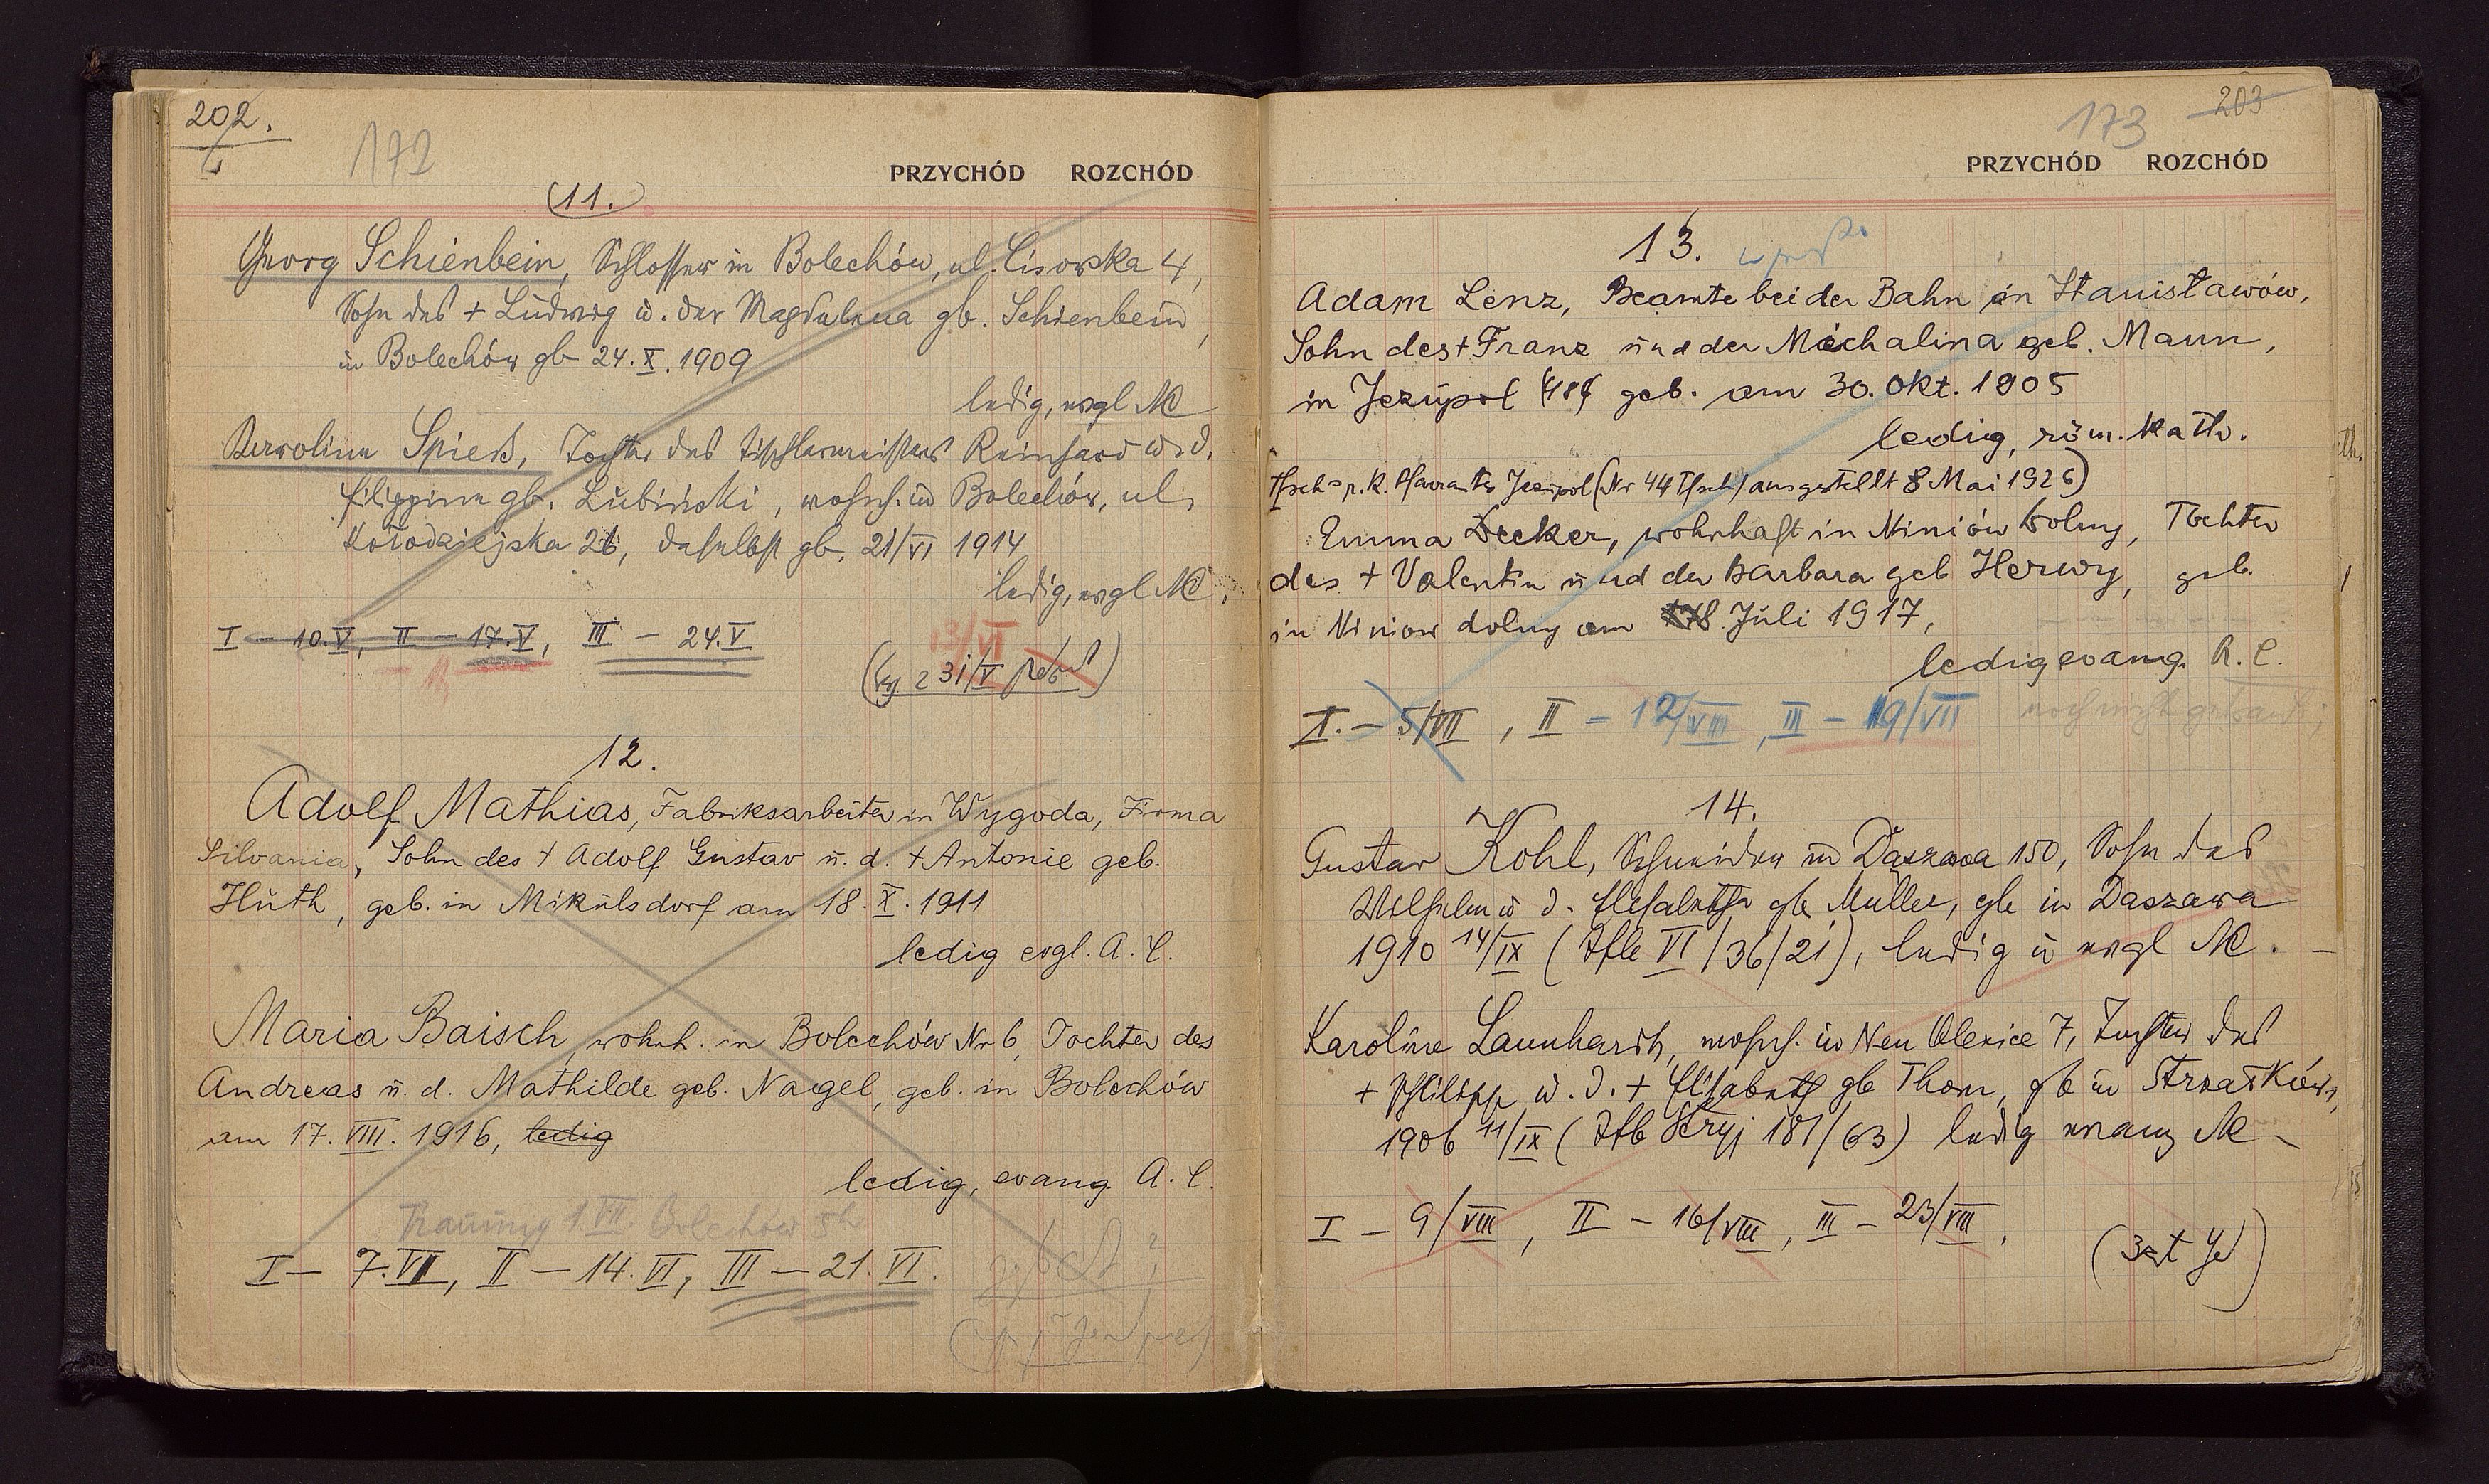 202.
172
PRZYCHÓD ROZCHÓD
11.
Georg Schienbein, Schlosser in Bolechów, ul. Lisowska 4,
Sohn des + Ludwig u. der Magdalena gb. Schienbein,
in Bolechów gb 24. X. 1909
ledig, evgl AC
Karoline Spieß, Tochter des Tischlermeisters Reinhard u. d.
Filippine gb. Lubiński, wohnh. in Bolechów, ul.
Kołodziejska 26, daselbst gb. 21/VI 1914
ledig, evgl AC.
I – 10.V, II – 17.V, III – 24.V
13/VI
31/V
12.
Adolf Mathias, Fabriksarbeiter in Wygoda, Firma
Silvania, Sohn des + Adolf Gustav u. d. + Antonie geb.
Huth, geb. in Mikulsdorf am 18. X. 1911
ledig evgl. A. C.
Maria Baisch, wohnh. in Bolechów Nr 6, Tochter des
Andreas u. d. Mathilde geb. Nagel, geb. in Bolechów
am 17. VIII. 1916, ledig
ledig, evang. A. C.
Trauung 1. VII Bolechow 5h
I – 7. VI, II – 14. VI, III – 21. VI.
203
173
PRZYCHÓD ROZCHÓD
13.
Adam Lenz, Beamte bei der Bahn in Stanisławów,
Sohn des + Franz und der Michalina geb. Maun,
in Jezupol geb. am 30. Okt. 1905
ledig, röm. kath.
Tfsch r. k. Pfarramtes Jezupol (Nr 44 Tfsch) ausgestellt 8 Mai 1926)
Emma Decker, wohnhaft in Miniów dolny, Tochter
des + Valentin und der Barbara geb Herwy, geb.
in Miniow dolny am 8. Juli 1917,
ledig evang. A. C.
noch nicht getraut;
I. – 5/VII, II – 12/VIII, III – 19/VII
14.
Gustav Kohl, Schneider in Daszawa 150, Sohn des
Wilhelm u d. Elisabetha gb Müller, gb in Daszawa
1910 14/IX (Tfb VI/36/21), ledig u evgl AC. –
Karoline Launhardt, wohnh. in Neu Olexice 7, Tochter des
+ Philipp u. d. + Elisabeth gb Thom, gb in Strzałków,
1906 11/IX (Tfb Stryj 181/63) ledig evang AC –
I – 9/VIII, II – 16/VIII, III – 23/VIII.